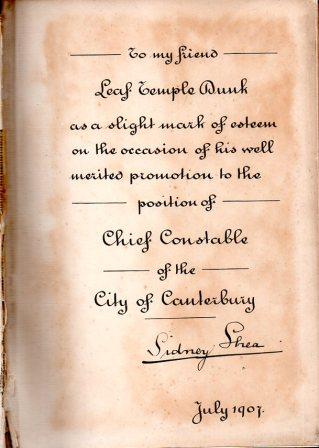 To my friend
Leaf Temple Dunk
as a slight mark of esteem
on the occasion of his well
merited promotion to the
position of
Chief Constable
of the
City of Canterbury
Sidney Shea.
July 1907.